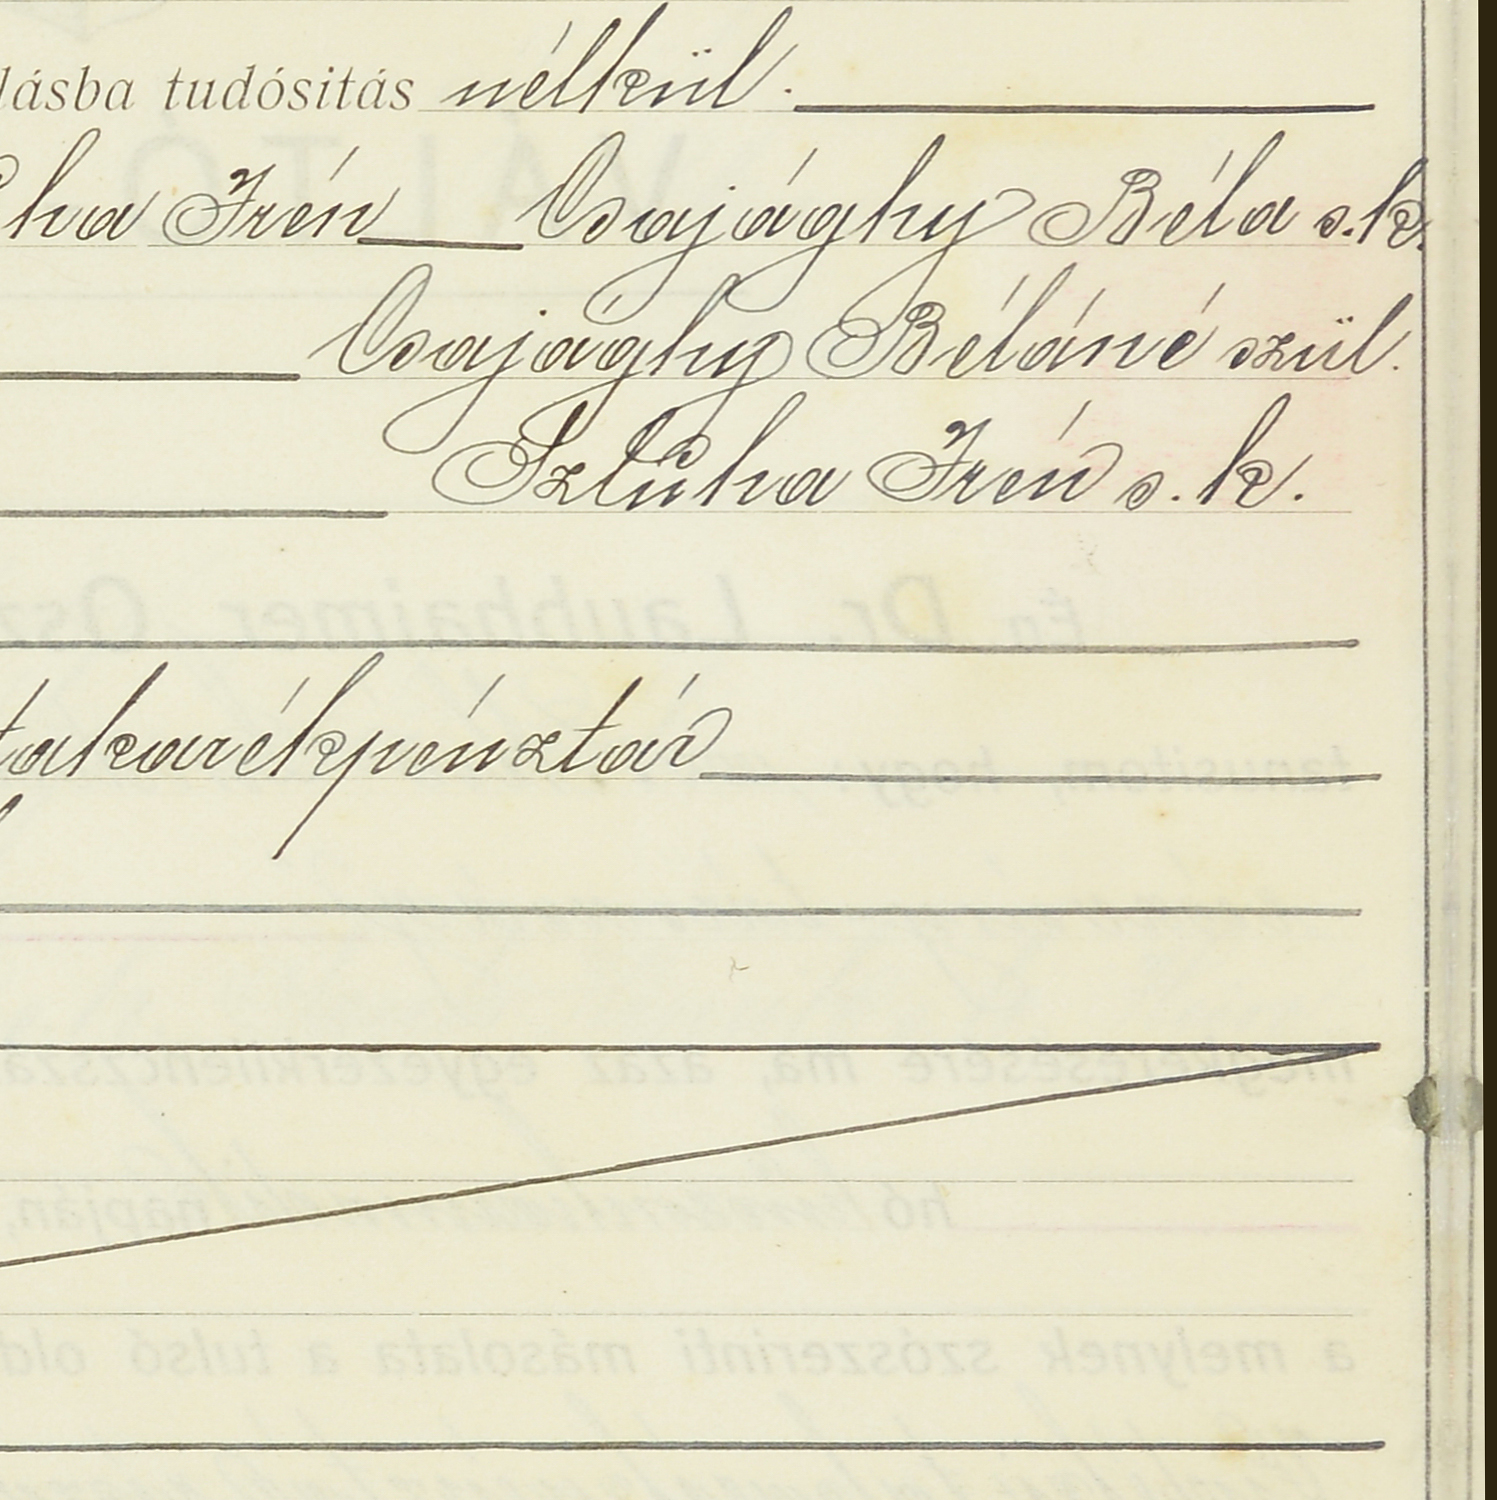 lásba tudósitás nélkül.
ha Irén Csajághy Béla s.k.
Csajághy Béláné szül.
Sztuha Irén s.k.
takarékpénztár